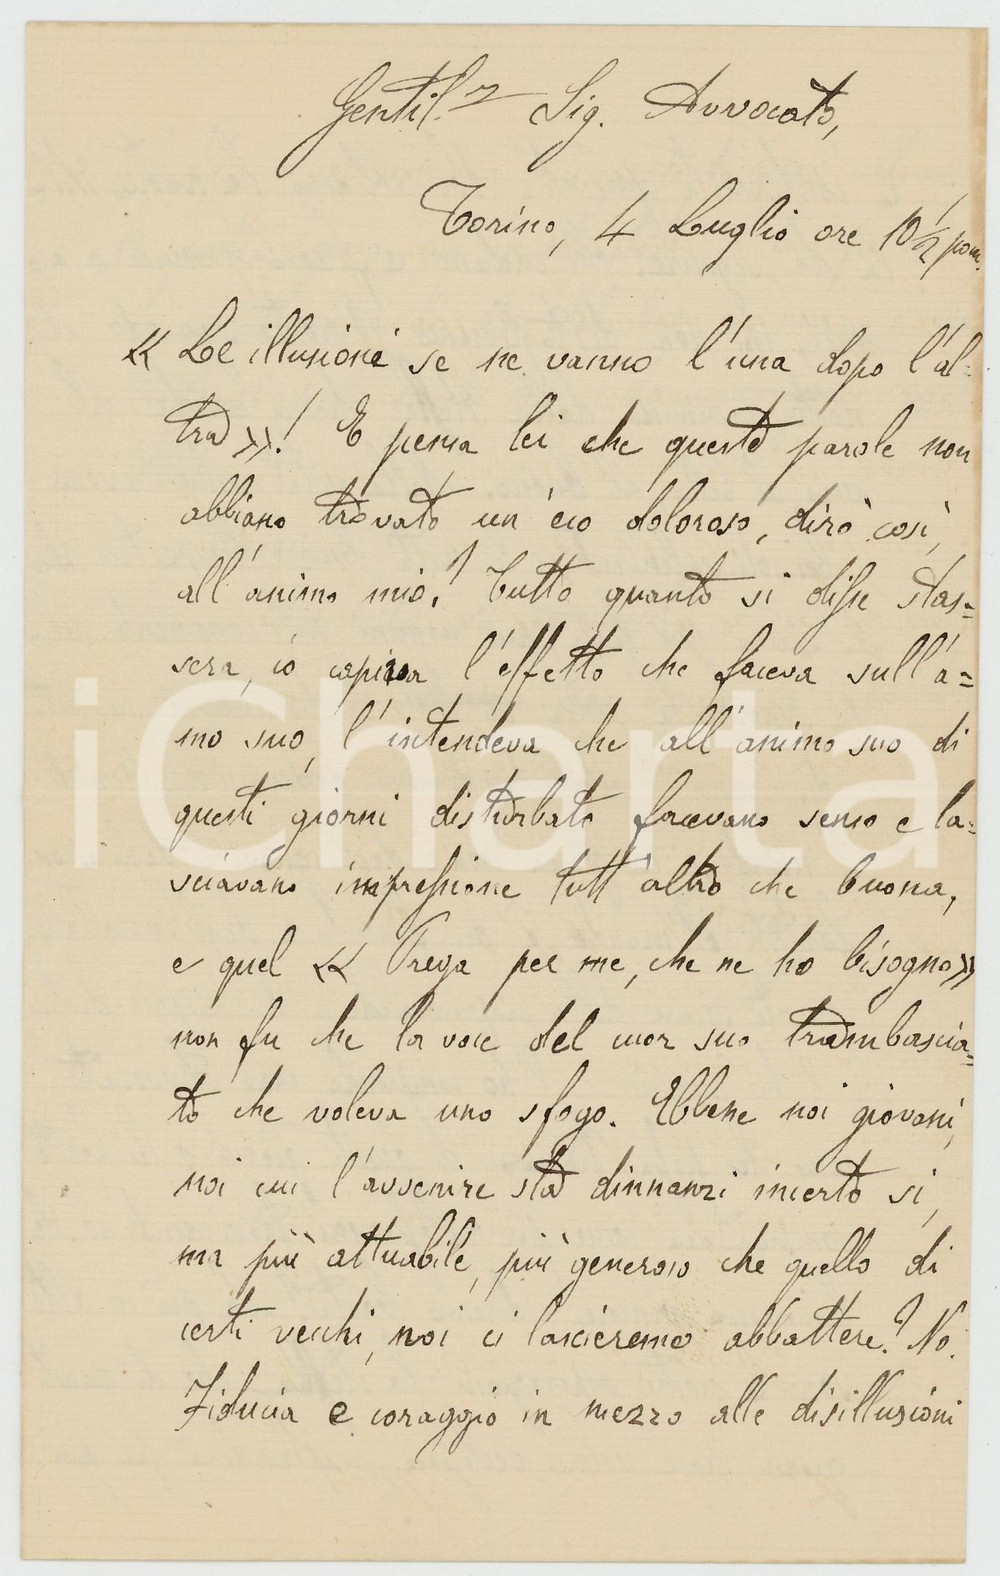 Gentil.mo Sig. Avvocato,
Torino, 4 Luglio ore 10 1/2 pom.
« Le illusioni se ne vanno l'una dopo l'al=
tra »! E pensa lei che queste parole non
abbiano trovato un'eco doloroso, dirò così,
all'animo mio? Tutto quanto si disse stas=
sera, io capiva l'effetto che faceva sull'a=
mo suo, l'intendeva che all'animo suo di
questi giorni disturbato facevano senso e la=
sciavano impressione tutt'altro che buona,
e quel « Prega per me, che ne ho bisogno »
non fu che la voce del cuor suo trambascia=
to che voleva uno sfogo. Ebbene noi giovani,
noi cui l'avvenire sta dinnanzi incerto sì,
ma più attuabile, più generoso che quello di
certi vecchi, noi ci lascieremo abbattere? No.
Fiducia e coraggio in mezzo alle disillusioni
iCharta